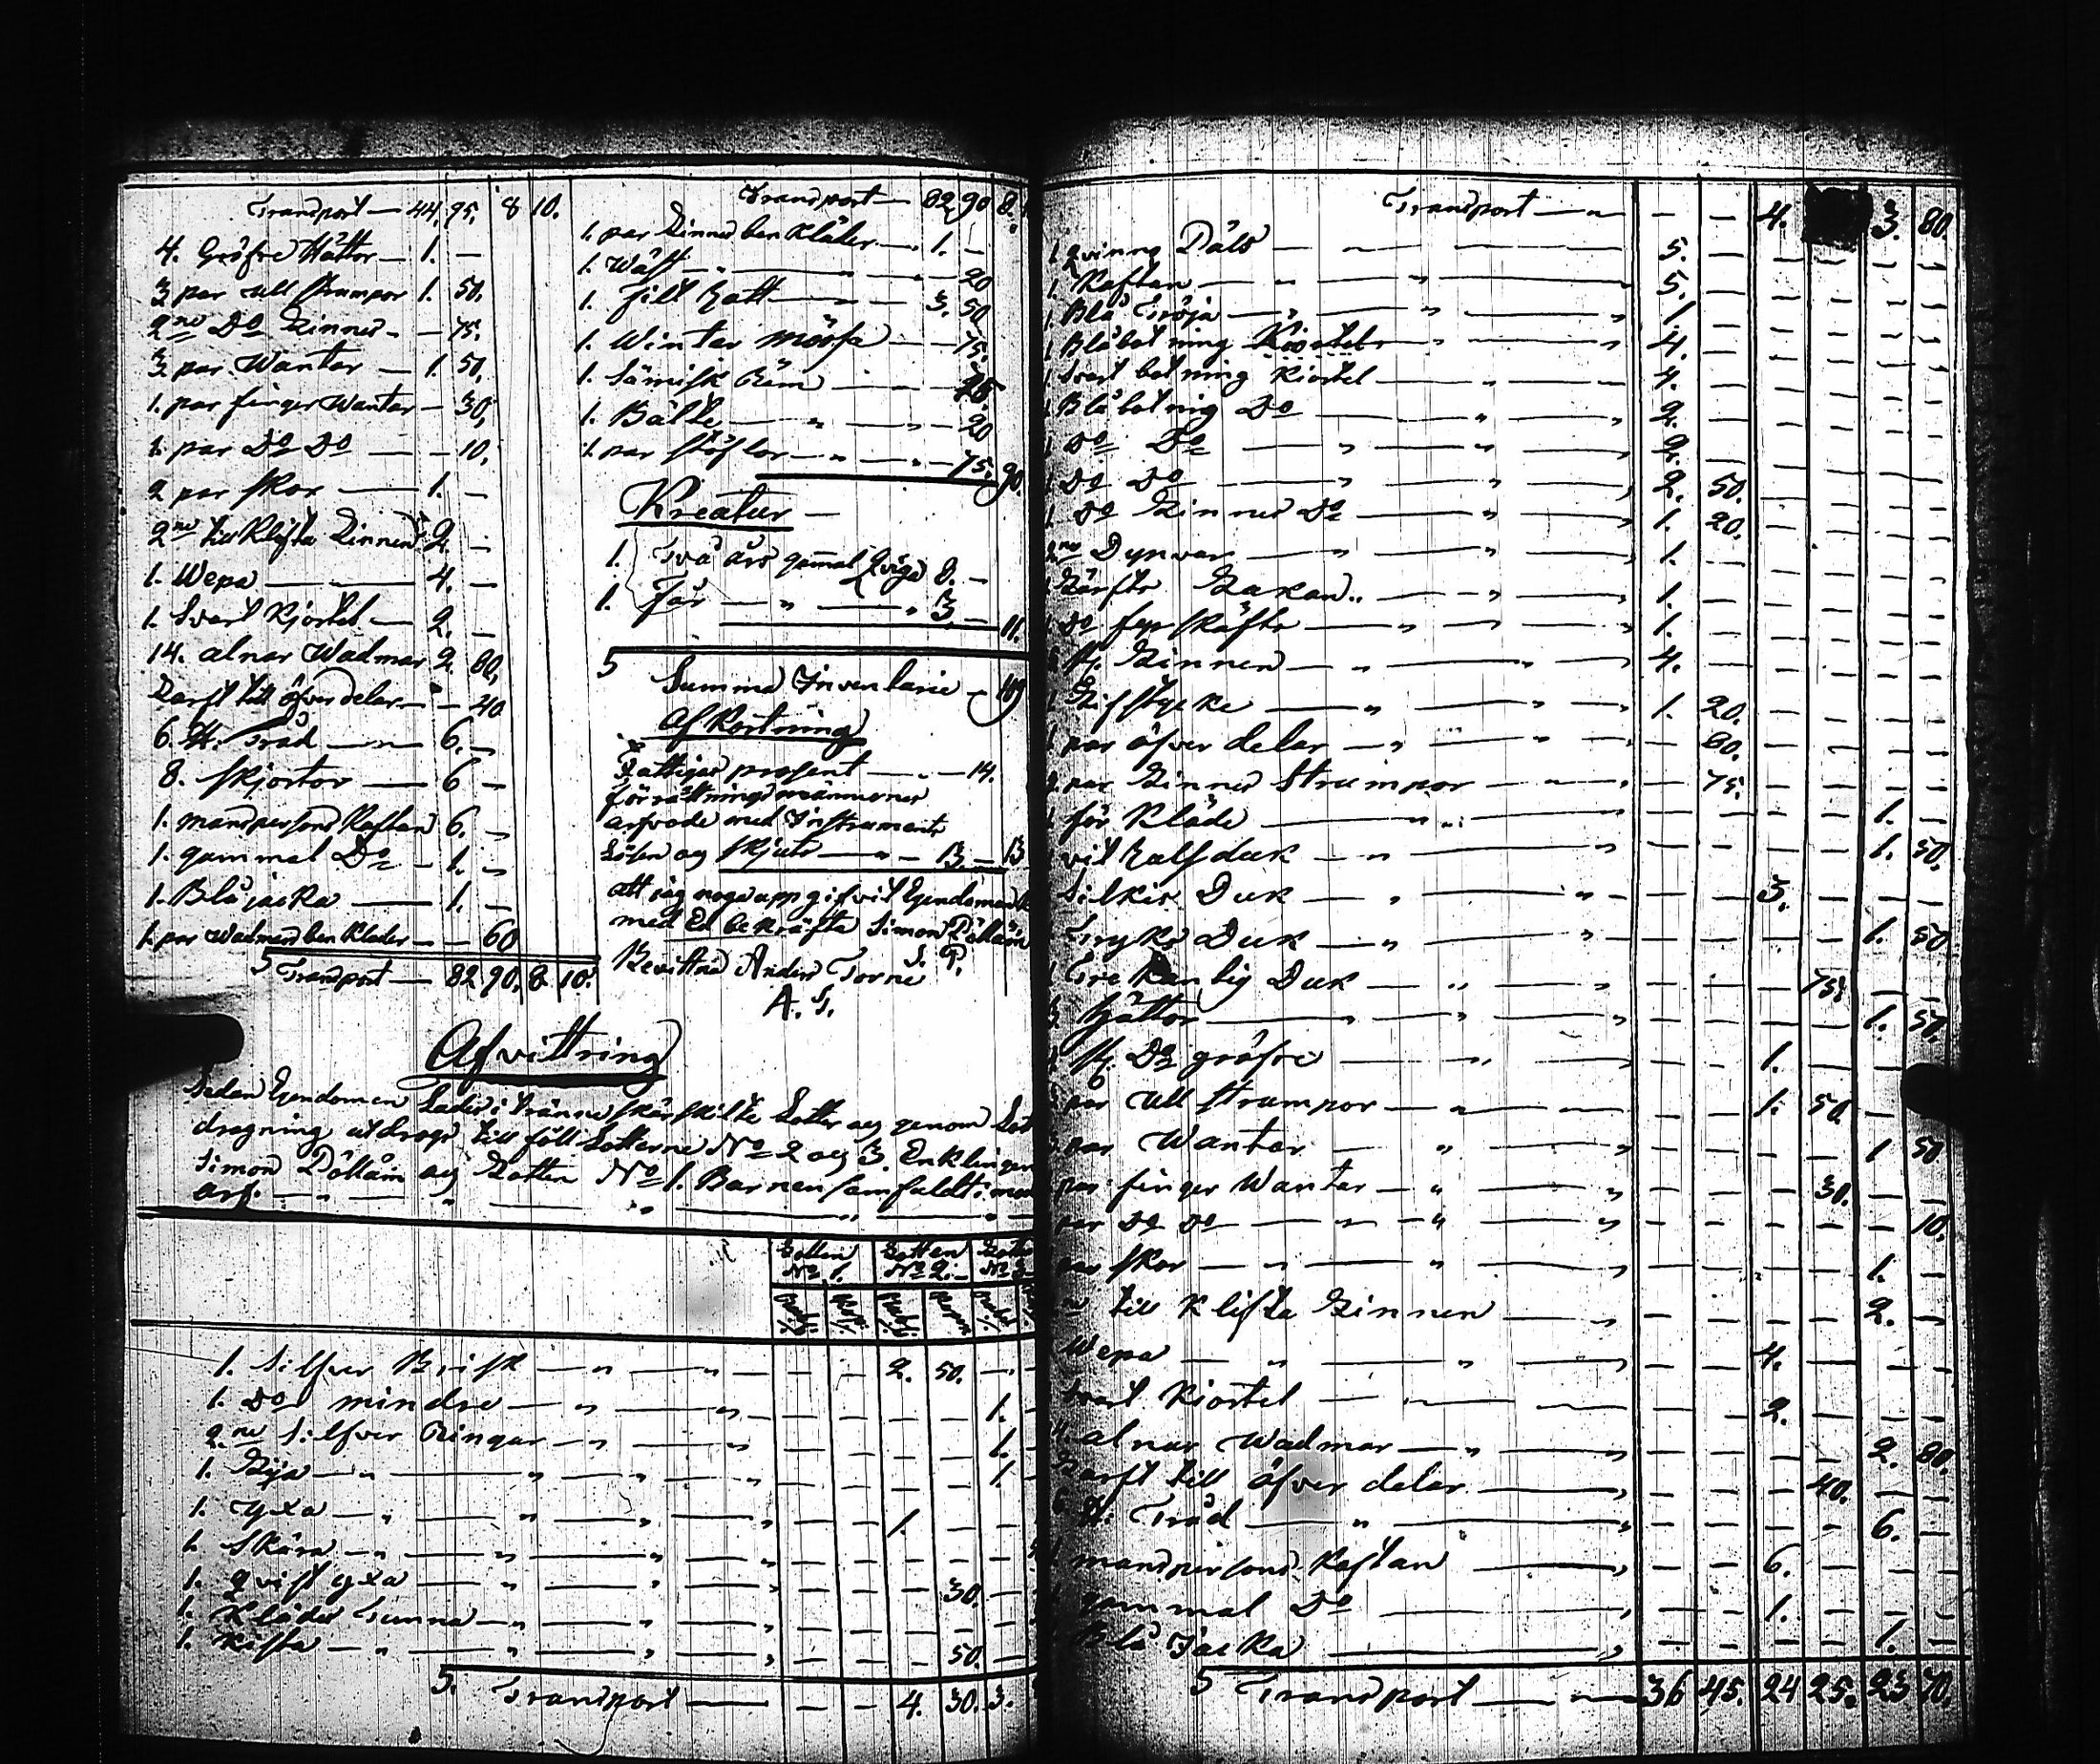 Transport — 44. 95. 8 10.
4. Gröfre Hättor — 1. —
3 par ull strumpor 1. 50.
2ne Do Linnes — — 75.
3 par Wantar — 1. 50.
1. par finger Wantar — 30.
1. par Do Do — — 10.
2 par skor — 1. —
2ne till Klifta Linnen 2. —
1. Wepa — 4. —
1. Svart Kjortel — 2. —
14. alnar Wadmar 2. 80.
Larft till öfverdelar — — 40
6. ℔. Tråd — 6. —
8. skjortor — 6 —
1. manspersons Kaftan 6. —
1. gammal Do — 1. —
1. Blå jacka — 1. —
1. par Wadmars ben Kläder — — 60
Transport — 82 90. 8. 10.
Transport — 82 90 8.
1. par Linnes ben Kläder — 1. —
1. Wäst — „ — „ — 20
1. filt hatt — „ — 3. 50
1. Winter mössa — — 75.
1. Sämisk Rem — — 25
1. Bälte — „ — „ — 20
1. par stöflor — „ — „ — 75. 90.
Kreatur —
1. Två års gammal Qviga 8. —
1. Får — „ — „ 3. — 11.
Summa Inventarie — 109
Afkortning
Fattiges prosent — „ — 14.
förrättningsmännernes
arfvode med Instruments
Lösen og skjuts — „ — 13 — 13
att jag noga uppgifvit Egendomen
med Ed bekräfta Simon Pållain
S. P.
Bevittna Anders Torne
A. T.
Afvittring
Sedan Egendomen Lades i tränne skärskilte Lotter og genom Lot
dragning utdrogs till föll Lotterne No 2 og 3. Enklingen
Simon Pållain og Lotten No 1. Barnen samfäldt i mors
arf. — „ — „ — „ — „ — „
Lotten No 1. Lotten No 2. Lotten No 3
1. Silfver Brisk — „ — „ — — — 2. 50. — —
1. Do mindre — „ — „ — — — — — 1. —
2.ne Silfver Ringar — „ — „ — — — — — 1. —
1. Lya — „ — „ — „ — — — — — 1. —
1. Yxa — „ — „ — „ — — — 1. — — —
1. Skära — „ — „ — „ — — — — — —
1. qvist yxa — „ — „ — — — — 30. —
1. Kläder Tunna — „ — „ — — — — — —
1. Kista — „ — „ — „ — — — — 50. —
Transport — — — — 4. 30. 3.
Transport — „ — — 4. 3. 80.
1 qvinns Päls — „ — „ — 5. — — — — —
1. Kaftan — „ — „ — 5. — — — — —
1. Blå Tröja — „ — „ — 1 — — — — —
1 Blåbotning Kiortel — „ — „ 4. — — — — —
1 Svart botning Kiortel — „ — „ 4. — — — — —
1 Blåbotnig Do — „ — „ 2. — — — — —
1. Do Do — „ — „ 2. — — — — —
1. Do Do — „ — „ 2. 50. — — — —
1 Do Linnes Do — „ — „ 1. 20. — — — —
2ne Dynvar — „ — „ 1. — — — — —
Lärfts Lakan „ — „ — „ 1. — — — — —
1 Do fyr skäfts — „ — „ 1. — — — — —
st. Linnen — „ — „ 4. — — — — —
1 Lifstycke — „ — „ 1. 20. — — — —
1. par öfver delar — „ — „ — 80. — — — —
par Linnes Strumpor — „ — — 75. — — — —
1 för Kläde — „ — — — — 1. —
vit halfduk — „ — „ — — — — 1. 50.
Silkis Duk — „ — „ — — 3. — — —
Tryks Duk — „ — „ — — — — 1. 50
1 Tre Kantig Duk — „ — „ — — — 75. — —
3 hättor — „ — „ — — — — 1. 50.
4 st. Do gröfre — „ — „ — — 1. — — —
par ull strumpor — „ — — — 1. 50 —
3 par Wantar — „ — „ — — — — 1 50
par finger Wantar — „ — „ — — — 30. — —
par Do Do — „ — „ — „ — — — — — 10.
par skor — „ — „ — „ — — — — 1. —
till Klifta Linnen — — — — 2. —
Wepa — „ — „ — — — 4. — — —
svart Kiortel — „ — — — 2. — — —
alnar Wadmar — „ — — — — — 2. 80.
Larft till öfver delar — — — 40. — —
6. ℔. Tråd — „ — „ — — — — 6. —
1 manspersons Kaftan — — — 6. — — —
gammal Do — — — 1. — — —
Blå Jacka — — — — — 1. —
Transport — „ — 36 45. 24 25. 23 70.